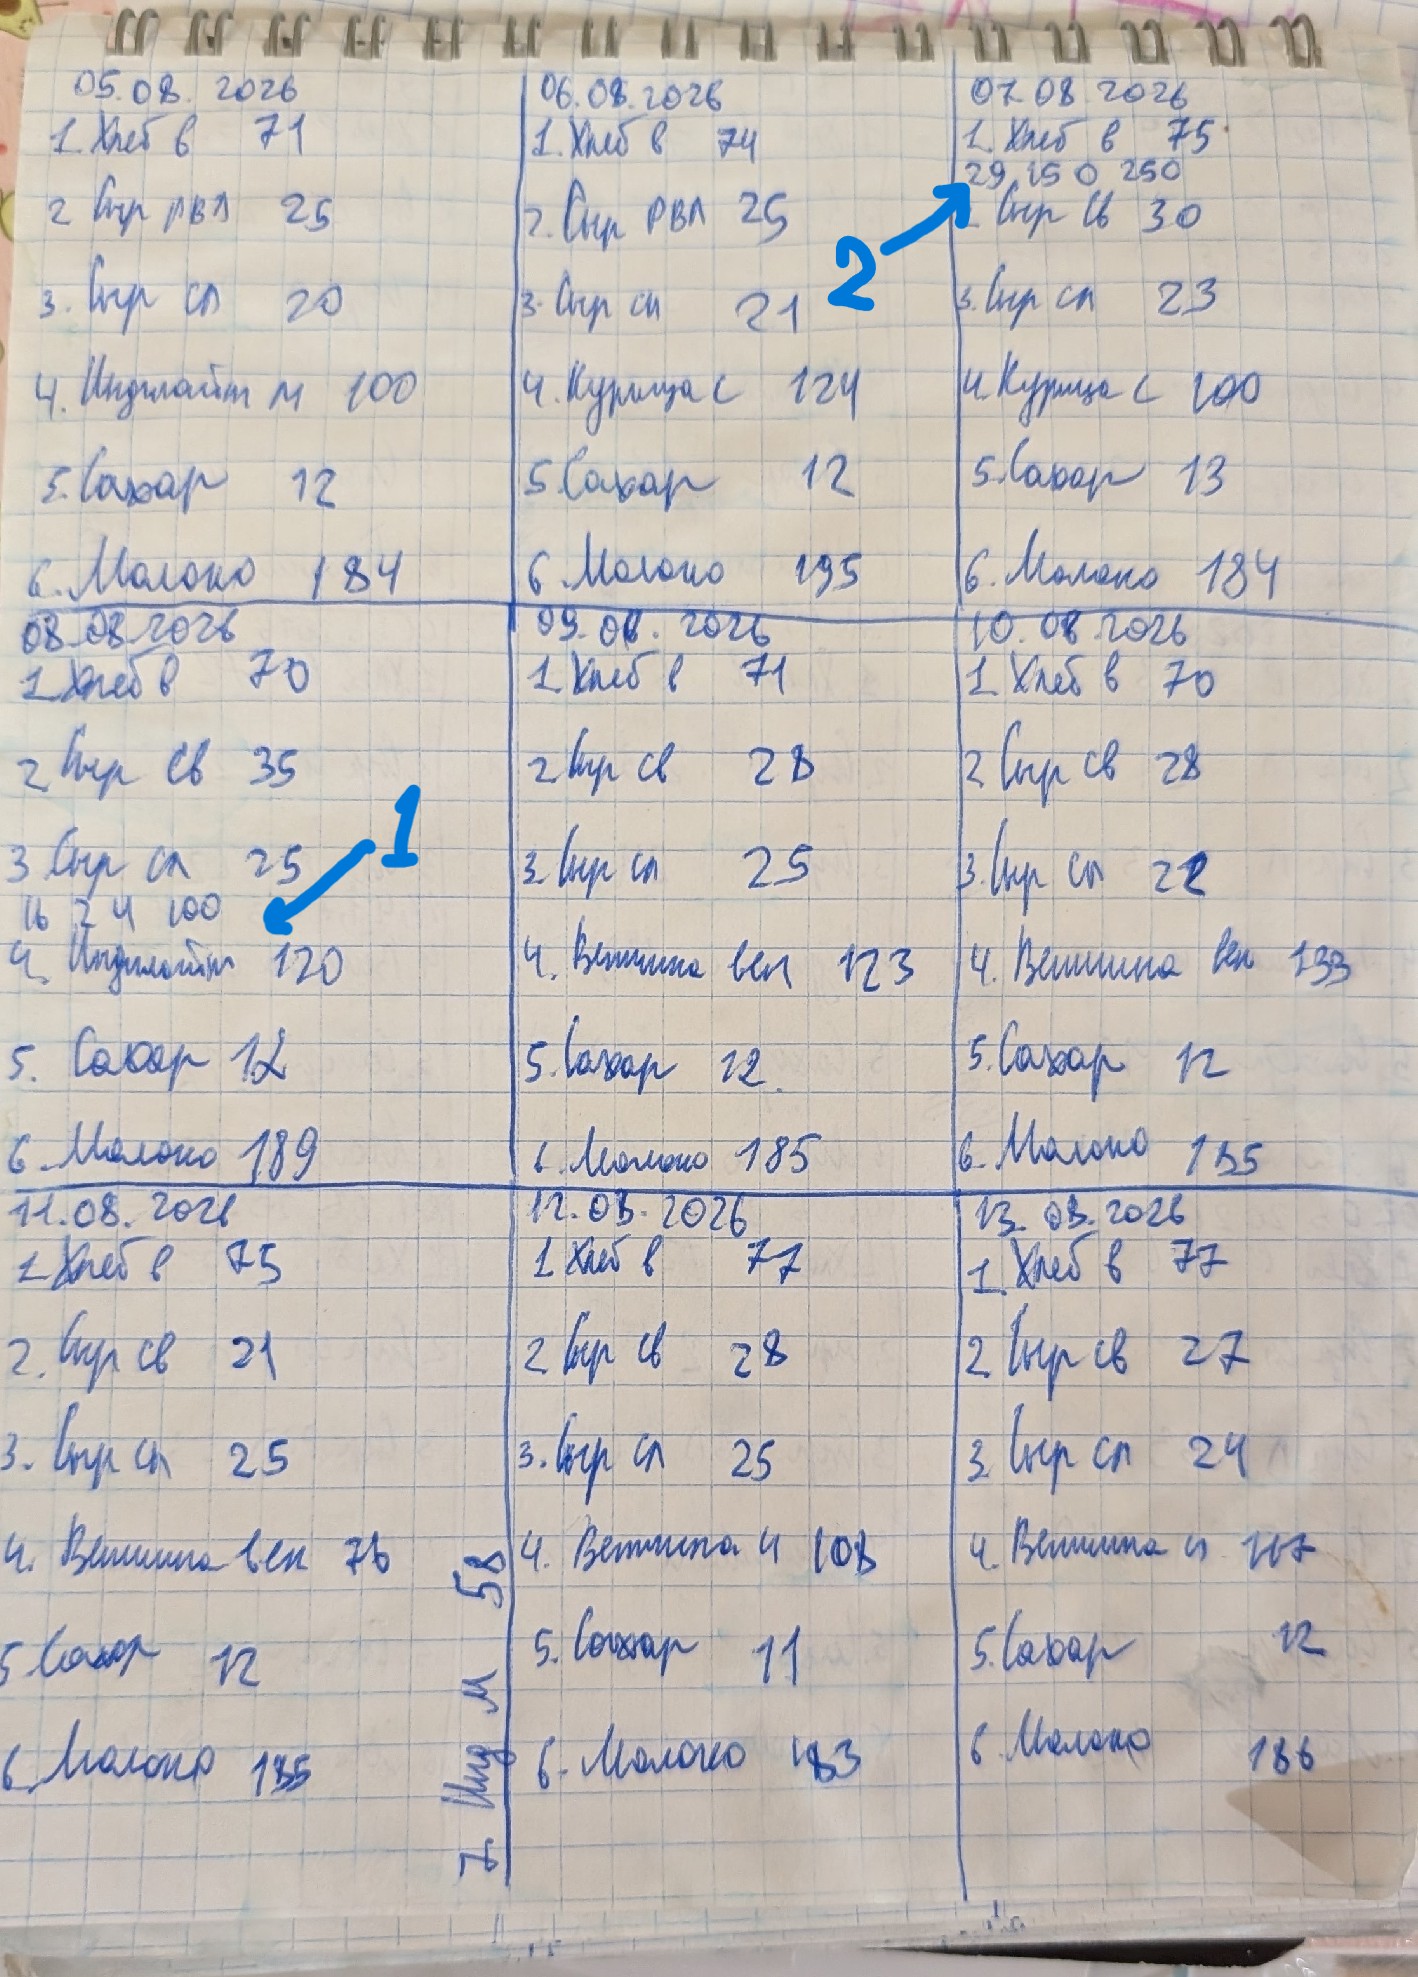 05.08.2026
1. Хлеб в 71
2 Сыр рвл 25
3. Сыр сл 20
4. Индилайт м 100
5. Сахар 12
6. Молоко 184
06.08.2026
1. Хлеб в 74
2. Сыр РВЛ 25
3. Сыр сл 21
4. Курица с 124
5. Сахар 12
6 Молоко 195
2
07.08 2026
1. Хлеб в 75
29 15 0 250
Сыр св 30
3. Сыр сл 23
4. Курица с 100
5. Сахар 13
6. Молоко 184
08.08.2026
1 Хлеб в 70
2 Сыр св 35
3 Сыр сл 25
1
16 2 4 100
4. Индилайт 120
5. Сахар 12
6. Молоко 189
09.08.2026
1 Хлеб в 71
2 Сыр св 28
3. Сыр сл 25
4. Ветчина вел 123
5. Сахар 12.
6. Молоко 185
10.08.2026
1 Хлеб в 70
2 Сыр св 28
3. Сыр сл 22
4. Ветчина вел 133
5. Сахар 12
6. Молоко 185
11.08.2026
1 Хлеб в 75
2. Сыр св 21
3. Сыр сл 25
4. Ветчина вел 76
5 Сахар 12
6 Молоко 185
7 Инд м 58
12.08.2026
1 Хлеб в 77
2 Сыр св 28
3. Сыр сл 25
4. Ветчина и 108
5. Сахар 11
6. Молоко 183
13.08.2026
1. Хлеб в 77
2 Сыр св 27
3 Сыр сл 24
4. Ветчина и 117
5. Сахар 12
6. Молоко 186